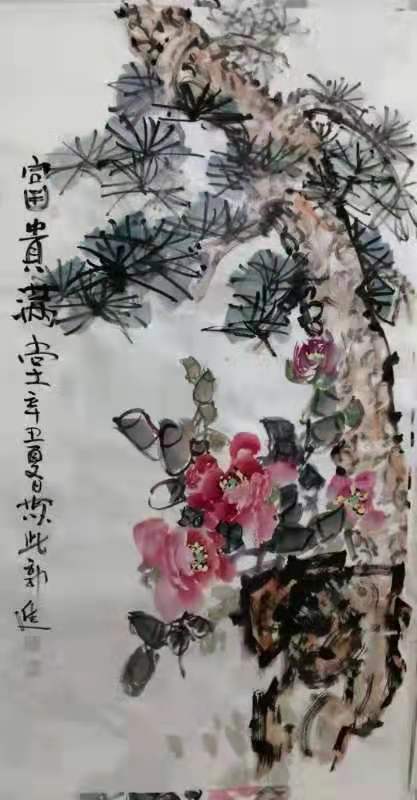 富貴滿堂辛丑夏日此郭